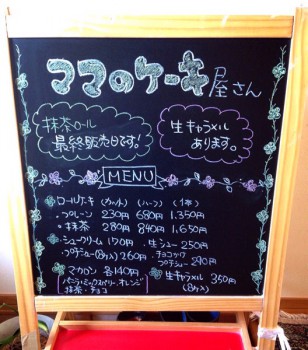 ママのケーキ屋さん
抹茶ロール
最終販売日です!
生キャラメル
あります。
MENU
ロールケーキ (カット) (ハーフ) (1本)
・プレーン 230円 680円 1,350円
・抹茶 280円 840円 1,650円
・シュークリーム 170円 ・生シュー 250円
・プチシュー(8ヶ入) 260円 ・チョコがけ
プチシュー 290円
・マカロン 各140円
バニラ・ミックスベリー・オレンジ
抹茶・チョコ
・生キャラメル 350円
(8ヶ入)